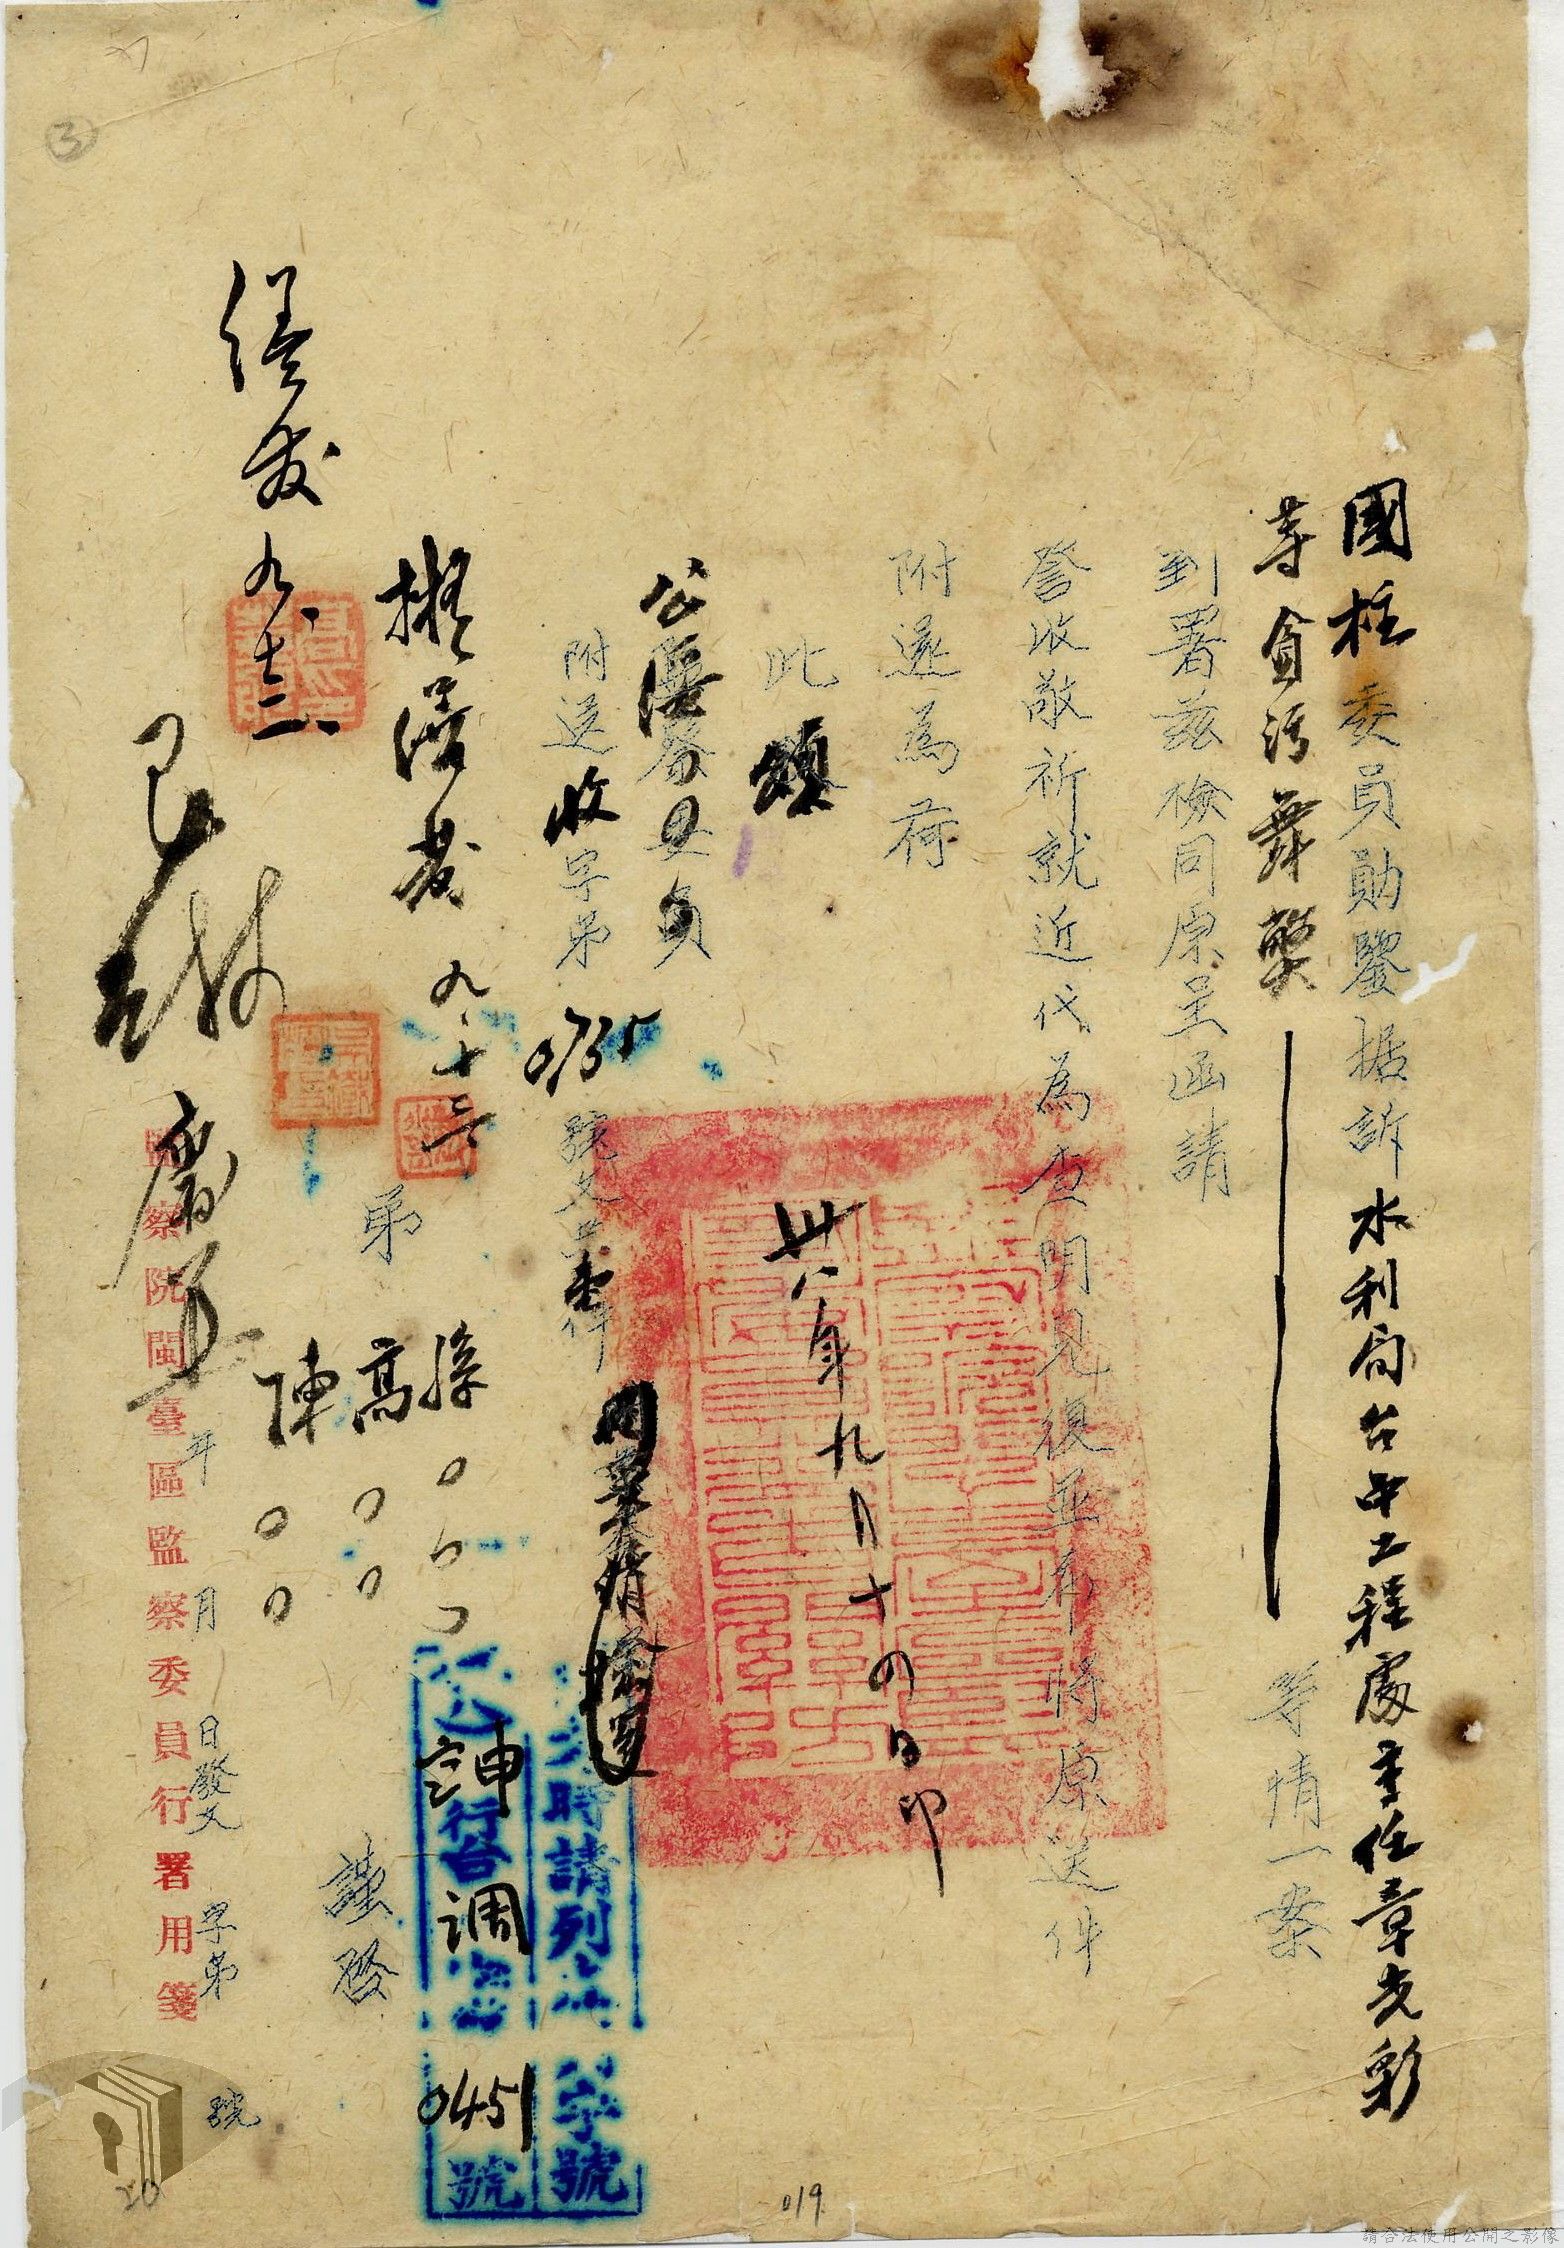 國柱委員勛鑒據訴水利局台中工程處主任章光彩
等貪污舞弊等情一案
到署茲檢同原呈函請
詧收敬祈就近代為查明見復並希將原送件
附還為荷
此頌
公綏
附送收字第0735號文呈壹件
卅八年九月十四日印
擬繕發 九、十三
弟 孫〇〇
高〇〇
陳〇〇
謹啓
繕發 九、十三
監察院閩臺區監察委員行署用箋
年 月 日發文 字第 號
時請列
字號
行台
調
0451號
3
20
019
請合法使用公開之影像